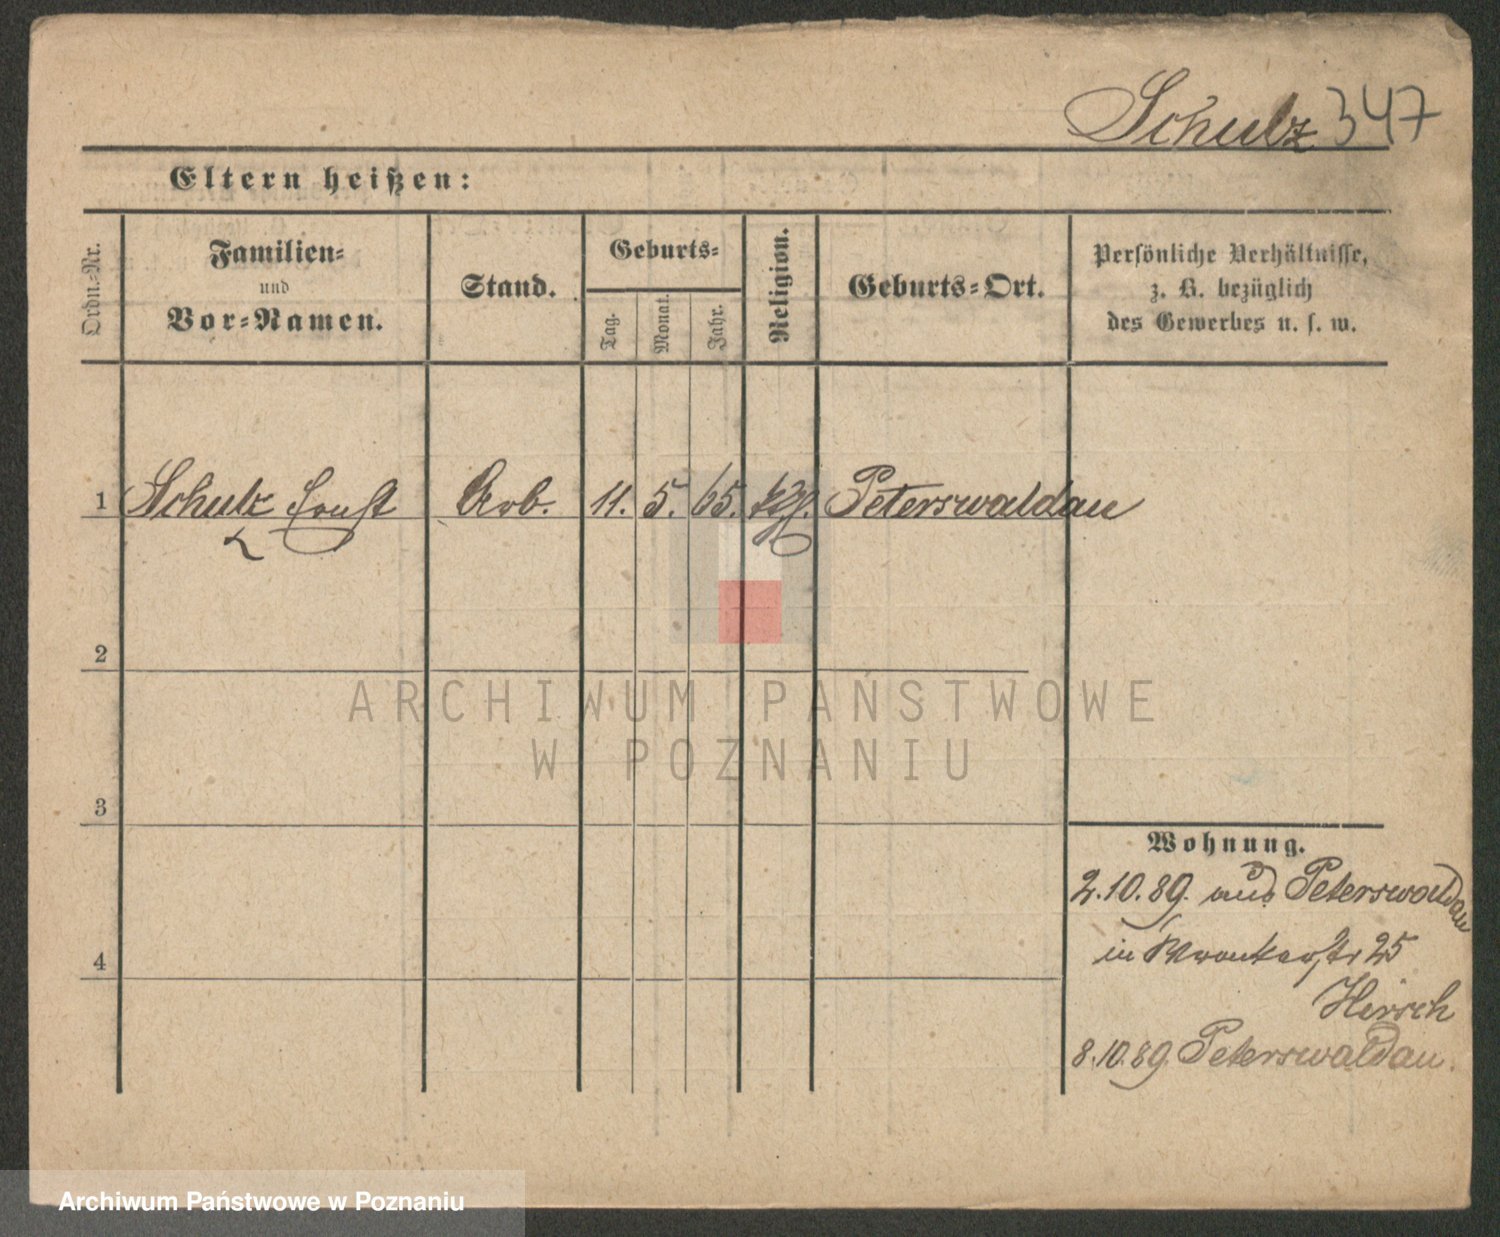 Schulz 347
Eltern heißen:
Ordn.-Nr.
Familien-
und
Vor-Namen.
Stand.
Geburts-
Tag.
Monat.
Jahr.
Religion.
Geburts-Ort.
Persönliche Verhältnisse,
z. B. bezüglich
des Gewerbes u. s. w.
1 Schulz Ernst Arb. 11. 5. 65. Peterswaldau
2
3
4
Wohnung.
2.10.89. aus Peterswaldau
in Wronkerstr 25
Hirsch
8.10.89. Peterswaldau.
ARCHIWUM PAŃSTWOWE
W POZNANIU
Archiwum Państwowe w Poznaniu